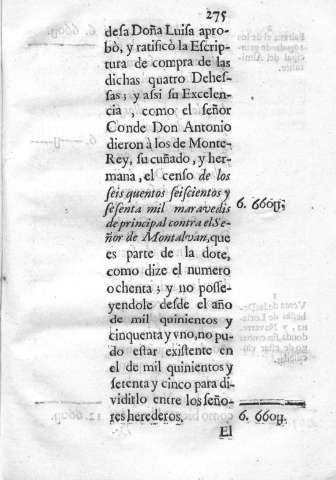 275
desa Doña Luisa apro-
bò, y ratificò la Escrip-
tura de compra de las
dichas quatro Dehes-
sas; y assi su Excelen-
cia, como el señor
Conde Don Antonio
dieron à los de Monte-
Rey, su cuñado, y her-
mana, el censo de los
seis quentos seiscientos y
sesenta mil maravedis
de principal contra el Se-
ñor de Montalvan, que
es parte de la dote,
como dize el numero
ochenta; y no posse-
yendole desde el año
de mil quinientos y
cinquenta y vno, no pu-
do estar existente en
el de mil quinientos y
setenta y cinco para di-
vidirlo entre los seño-
res herederos.
6. 660ꝗ.
6. 660ꝗ.
El